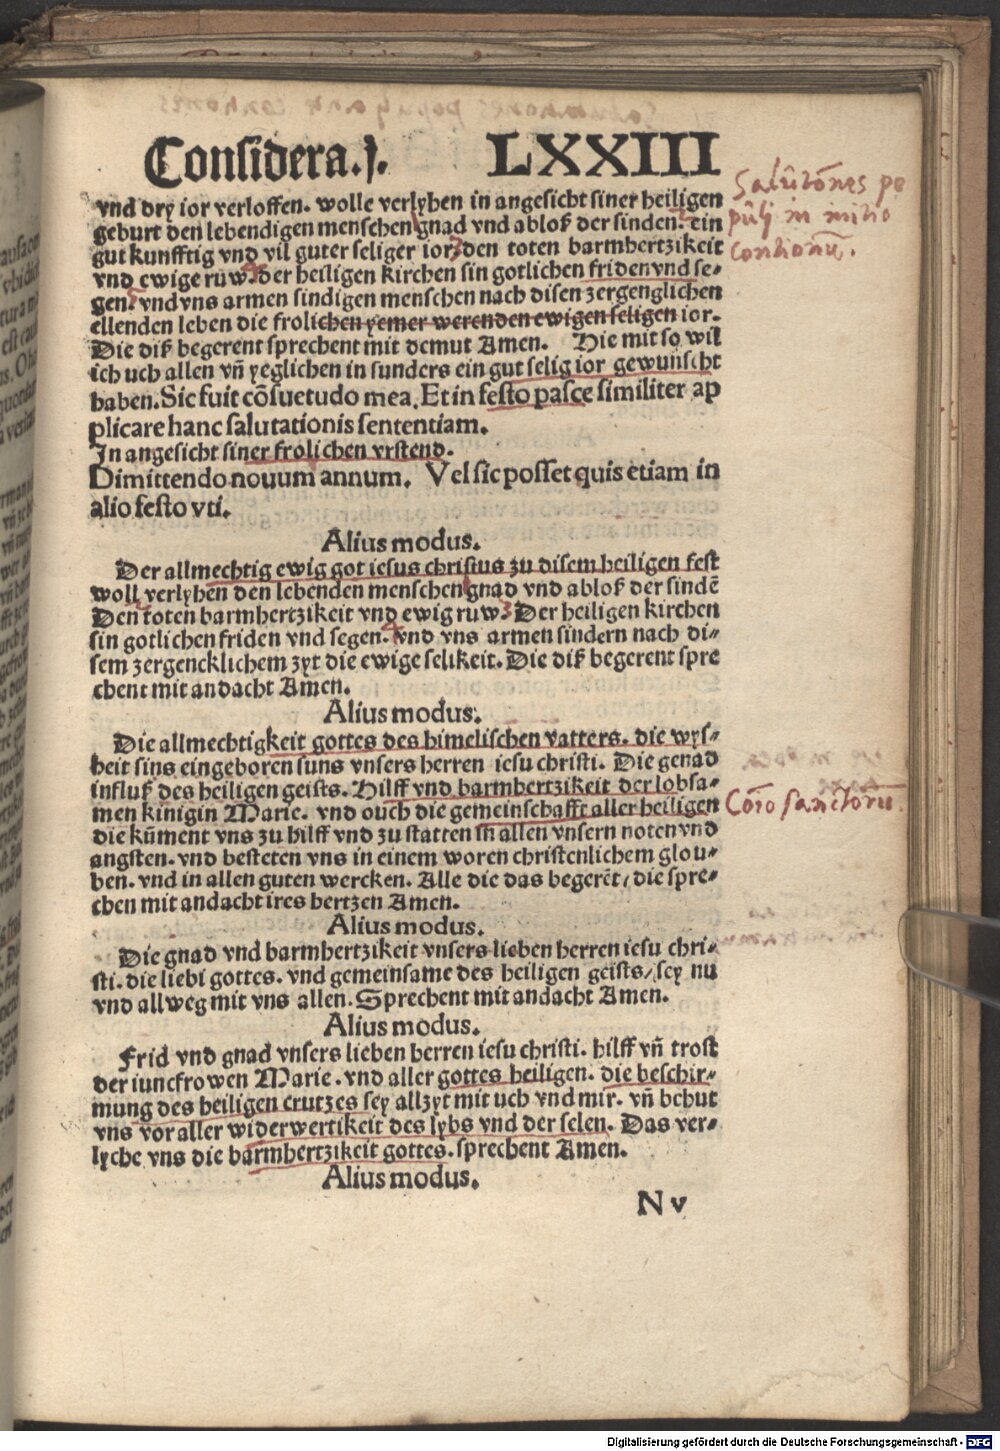 Considera.j. LXXIII
vnd dry ior verloffen. wolle verlyhen in angesicht siner heiligen
geburt den lebendigen menschen gnad vnd abloß der sinden. ein
gut kunfftig vnd vil guter seliger ior, den toten barmhertzikeit
vnd ewige ruw. der heiligen kirchen sin gotlichen friden vnd se-
gen. vnd vns armen sindigen menschen nach disen zergenglichen
ellenden leben die frolichen yemer werenden ewigen seligen ior.
Die diß begerent sprechent mit demut Amen. Hie mit so wil
ich uch allen vñ yeglichen in sunders ein gut selig ior gewunscht
haben. Sic fuit cõsuetudo mea. Et in festo pasce similiter ap
plicare hanc salutationis sententiam.
In angesicht siner frolichen vrstend.
Dimittendo nouum annum. Vel sic posset quis etiam in
alio festo vti.
Alius modus.
Der allmechtig ewig got iesus christus zu disem heiligen fest
woll verlyhen den lebenden menschen gnad vnd abloß der sindē
Den toten barmhertzikeit vnd ewig ruw. Der heiligen kirchen
sin gotlichen friden vnd segen. vnd vns armen sindern nach di-
sem zergencklichem zyt die ewige selikeit. Die diß begerent spre
chent mit andacht Amen.
Alius modus.
Die allmechtigkeit gottes des himelischen vatters. die wys-
heit sins eingeboren suns vnsers herren iesu christi. Die genad
influß des heiligen geists. Hilff vnd barmhertzikeit der lobsa-
men kinigin Marie. vnd ouch die gemeinschafft aller heiligen
die kūment vns zu hilff vnd zu statten in allen vnsern noten vnd
angsten. vnd besteten vns in einem woren christenlichem glou-
ben. vnd in allen guten wercken. Alle die das begerēt / die spre-
chen mit andacht ires hertzen Amen.
Alius modus.
Die gnad vnd barmhertzikeit vnsers lieben herren iesu chri-
sti. die liebi gottes. vnd gemeinsame des heiligen geists / sey nu
vnd allweg mit vns allen. Sprechent mit andacht Amen.
Alius modus.
Frid vnd gnad vnsers lieben herren iesu christi. hilff vñ trost
der iunckfrowen Marie. vnd aller gottes heiligen. die beschir-
mung des heiligen crutzes sey allzyt mit uch vnd mir. vñ behut
vns vor aller widerwertikeit des lybs vnd der selen. Das ver-
lyche vns die barmhertzikeit gottes. sprechent Amen.
Alius modus.
N v
Salutõnes po
puli in initio
contionū.
Cõio sanctorū.
Digitalisierung gefördert durch die Deutsche Forschungsgemeinschaft - DFG